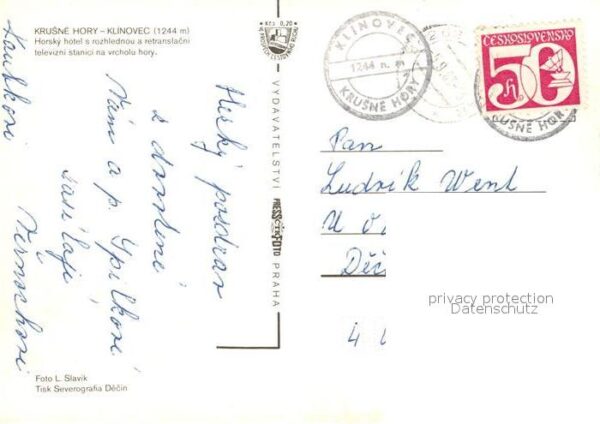 KRUŠNÉ HORY – KLÍNOVEC (1244 m)
Horský hotel s rozhlednou a retranslační
televizní stanicí na vrcholu hory.
Kčs 0,20
Hezký pozdrav
z dovolené
Vám a p.
zasílají
VYDAVATELSTVÍ PRESSFOTO PRAHA
Foto L. Slavík
Tisk Severografia Děčín
KLÍNOVEC
1244 n. m.
KRUŠNÉ HORY
ČESKOSLOVENSKO
50 h
KRUŠNÉ HORY
Pan
Ludvík Went
U
Děč
4
privacy protection
Datenschutz